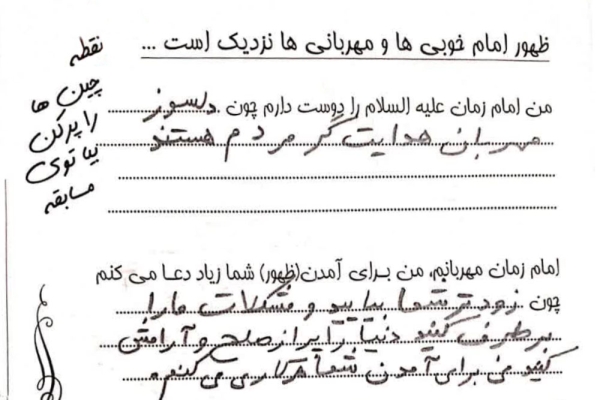 ظهور امام خوبی ها و مهربانی ها نزدیک است ...
نقطه
چین ها
را پر کن
بیا توی
مسابقه
من امام زمان علیه السلام را دوست دارم چون دلسوز
مهربان هدایت گر مردم هستند
امام زمان مهربانیم، من برای آمدن(ظهور) شما زیاد دعا می کنم
چون زودتر شما بیایید و مشکلات ما را
برطرف کنید دنیا را پر از صلح و آرامش
کنید من برای آمدن شما هرکاری می کنم.